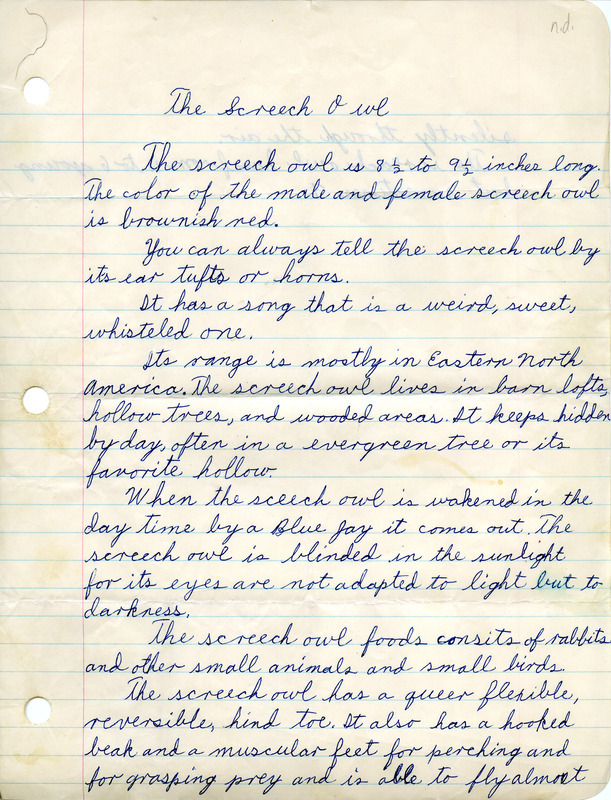 n.d.
The Screech Owl
The screech owl is 8½ to 9½ inches long.
The color of the male and female screech owl
is brownish red.
You can always tell the screech owl by
its ear tufts or horns.
It has a song that is a weird, sweet,
whisteled one.
Its range is mostly in Eastern North
America. The screech owl lives in barn lofts,
hollow trees, and wooded areas. It keeps hidden
by day, often in a evergreen tree or its
favorite hollow.
When the sceech owl is wakened in the
day time by a Blue Jay it comes out. The
screech owl is blinded in the sunlight
for its eyes are not adapted to light but to
darkness.
The screech owl foods consits of rabbits
and other small animals and small birds.
The screech owl has a queer flexible,
reversible, hind toe. It also has a hooked
beak and a muscular feet for perching and
for grasping prey and is able to fly almost